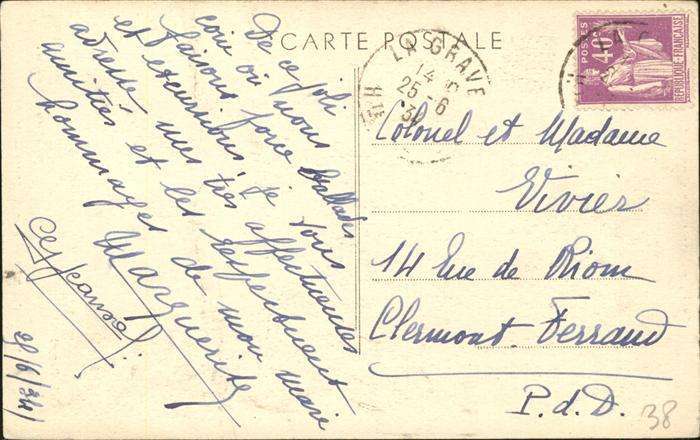 CARTE POSTALE
De ce joli
coin où nous
faisons force ballades
et excursions je vous
adresse mes très affectueuses
amitiés et les respectueux
hommages de mon mari
Marguerite
25/6/34
LA GRAVE
14
25-6
POSTES
40c
RÉPUBLIQUE FRANÇAISE
Colonel et Madame
Vivier
14 Rue de Riom
Clermont-Ferrand
P.d.D.
38